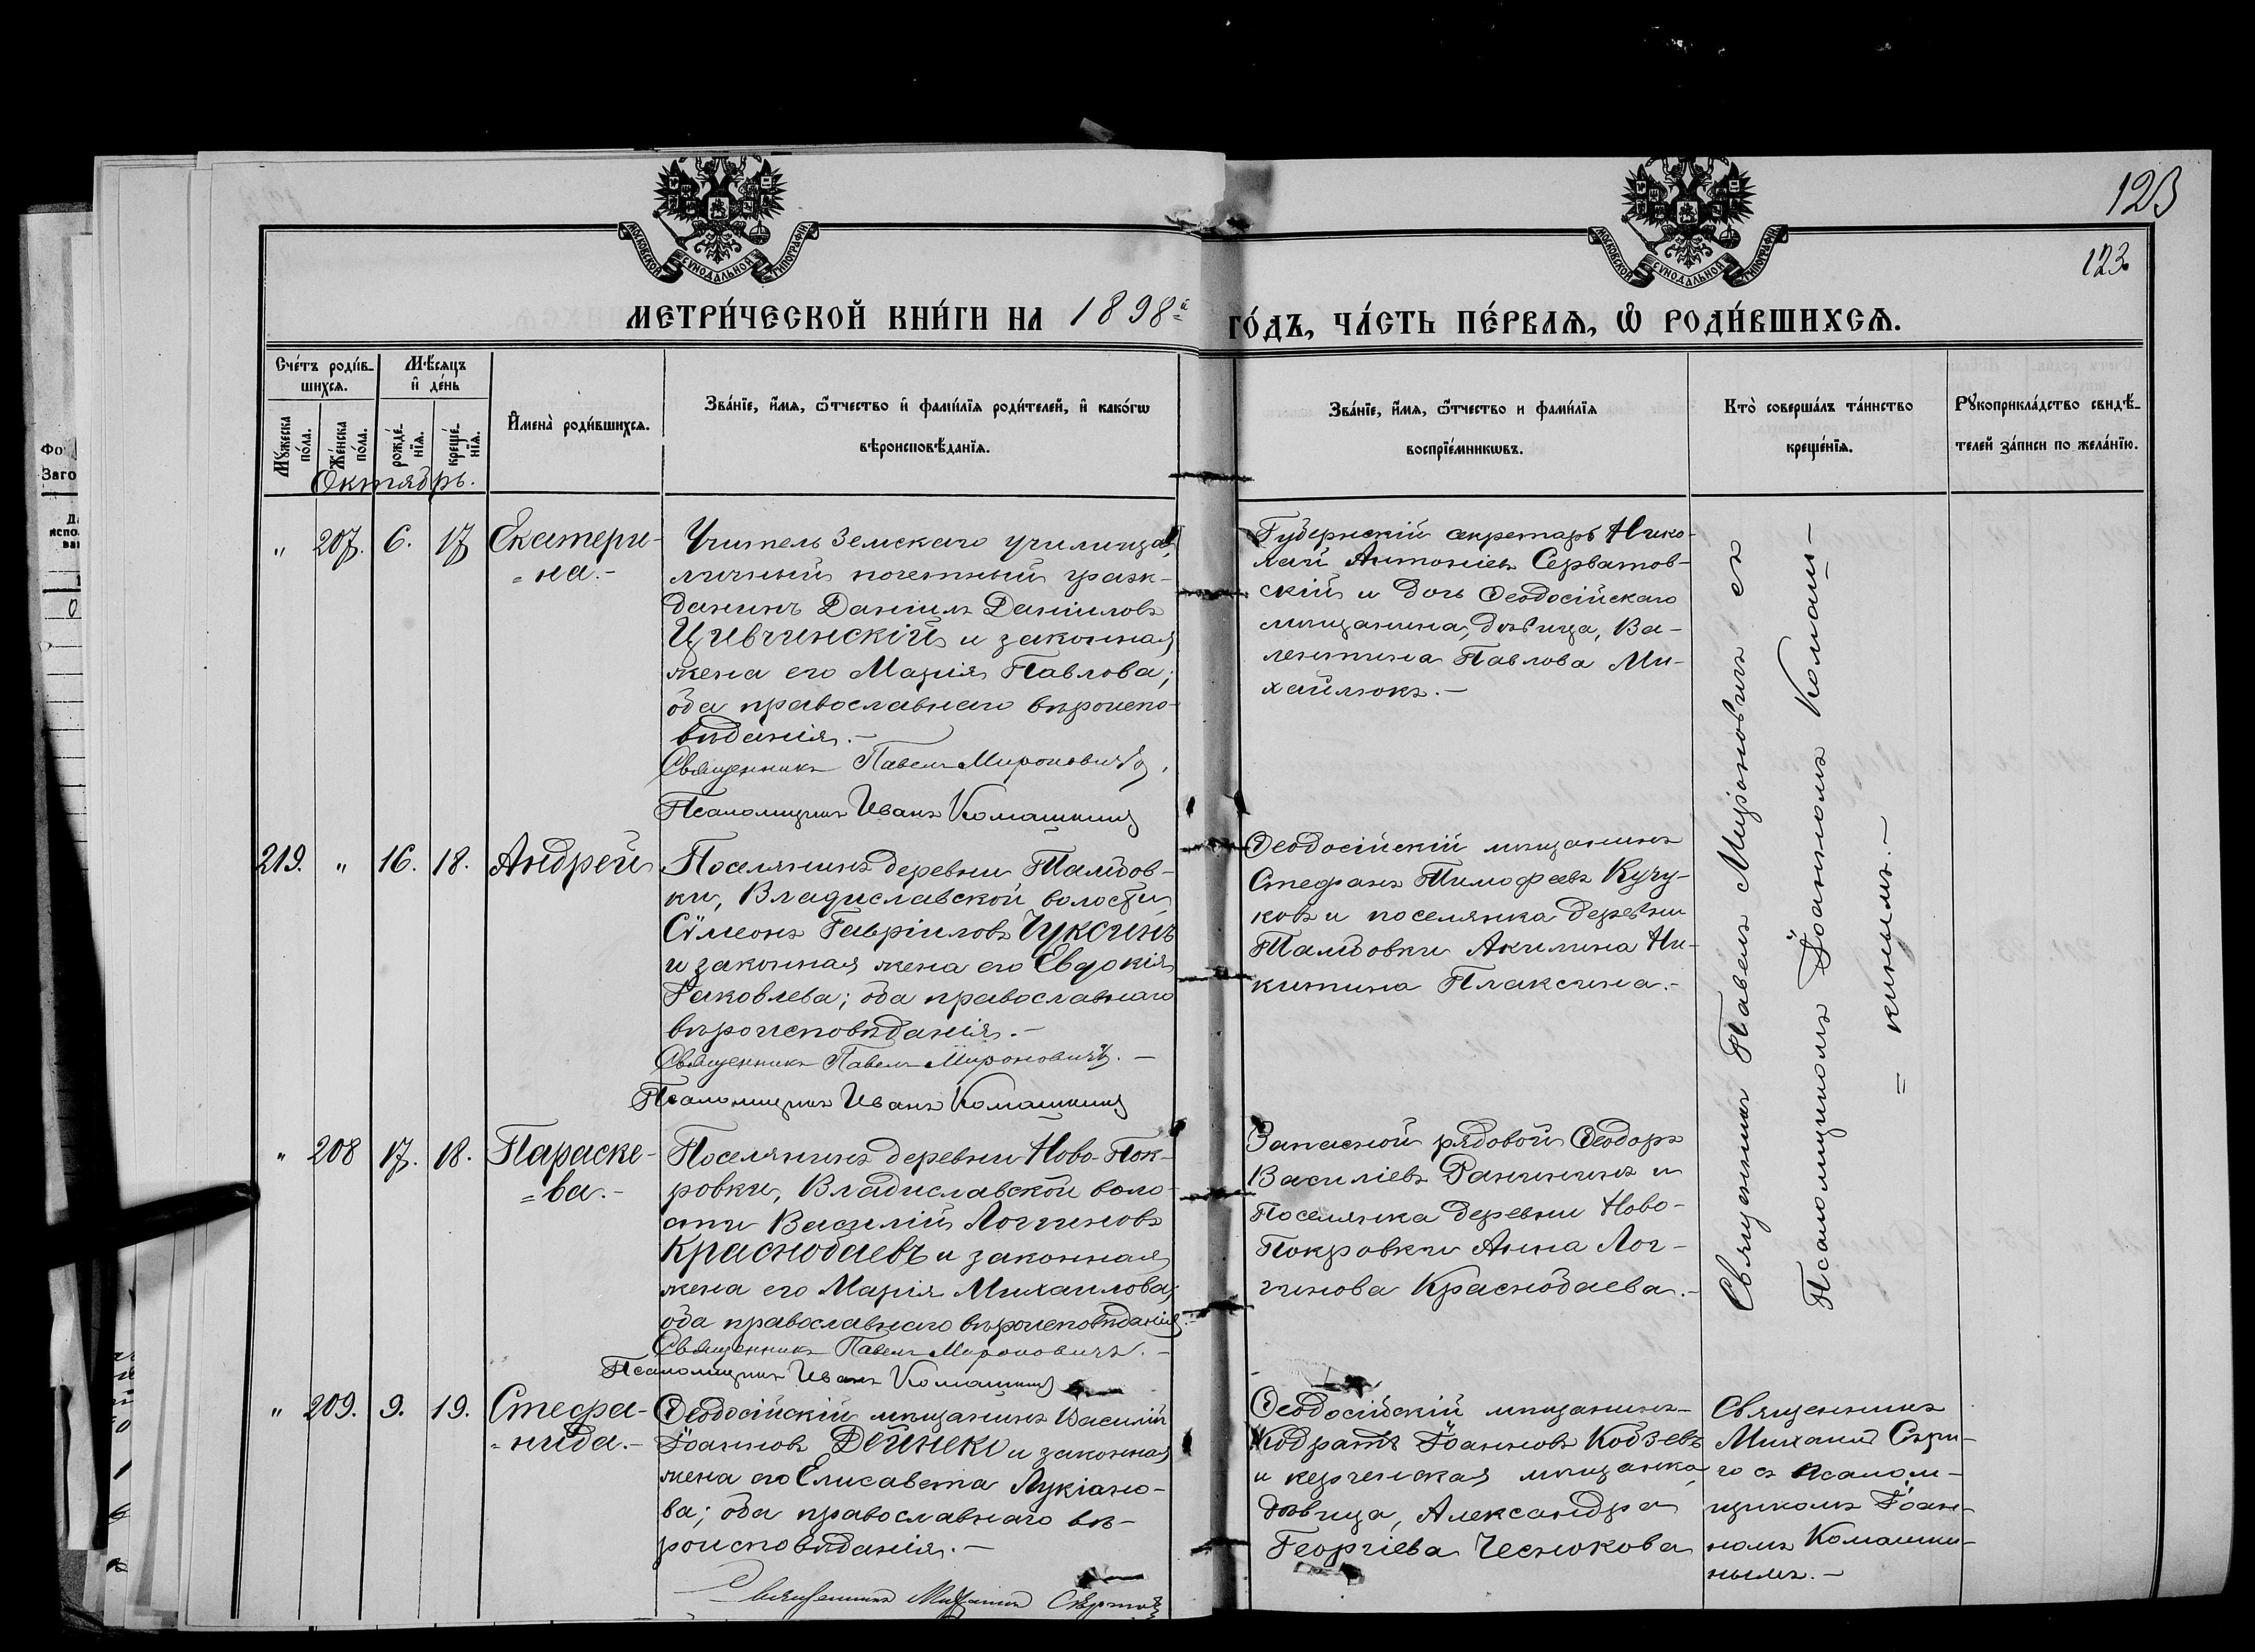 123
123.
МОСКОВСКОЙ СѴНОДАЛЬНОЙ ТИПОГРАФІИ
МОСКОВСКОЙ СѴНОДАЛЬНОЙ ТИПОГРАФІИ
МЕТРИ́ЧЕСКОЙ КНИ́ГИ НА 1898й ГО́ДЪ, ЧА́СТЬ ПЕ́РВАѦ, Ѡ РОДИ́ВШИХСѦ.
Сче́тъ роди́в-
шихсѧ.
Мꙋжеска
по́ла.
Же́нска
по́ла.
Мѣ́сѧцъ
и҆ де́нь
рожде́-
нїѧ.
креще́-
нїѧ.
И҆мена̀ роди́вшихсѧ.
Зва́нїе, и҆́мѧ, ѻ҆́тчество и҆ фами́лїѧ роди́телей, и҆ како́гѡ
вѣроисповѣ́данїѧ.
Зва́нїе, и҆́мѧ, ѻ҆́тчество и фами́лїѧ
воспрїе́мникѡвъ.
Кто̀ соверша́лъ та́инство
креще́нїѧ.
Рꙋкоприкла́дство свидѣ́-
телей за́писи по жела́нїю.
Октябрь.
„ 207. 6. 17 Екатери-
= на.-
Учитель Земскаго училища,
личный почетный граж-
данинъ Даніилъ Даніиловъ
Цивчинскій и законная
жена его Марія Павлова;
оба православнаго вѣроиспо-
вѣданія.-
Священникъ Павелъ Мироновичъ.
Псаломщикъ Иванъ Комашкинъ
Губернскій секретарь Нико-
лай Антоніевъ Серватов-
скій и дочь Ѳеодосійскаго
мѣщанина, дѣвица, Ва-
лентина Павлова Ми-
хайлюкъ.-
Священникъ Павелъ Мироновичъ съ
Псаломщикомъ Іоанномъ Комаш-
= кинымъ.-
219. „ 16. 18. Андрей
Поселянинъ деревни Тамбов-
ки, Владиславской волости
Сѵмеонъ Гавріиловъ Чуксинъ
и законная жена его Евдокія
Іаковлева; оба православнаго
вѣроисповѣданія.-
Священникъ Павелъ Мироновичъ.-
Псаломщикъ Иванъ Комашкинъ
Ѳеодосійскій мѣщанинъ
Стефанъ Тимофеевъ Кучу-
ковъ и поселянка деревни
Тамбовки Акилина Ни-
китина Плаксина.-
„ 208 17. 18. Параске-
= ва.-
Поселянинъ деревни Ново-Пок-
ровки, Владиславской воло-
сти Василій Логгиновъ
Краснобаевъ и законная
жена его Марія Михаилова;
оба православнаго вѣроисповѣданія.-
Священникъ Павелъ Мироновичъ.-
Псаломщикъ Иванъ Комашкинъ
Запасной рядовой Ѳеодоръ
Василіевъ Ванининъ и
поселянка деревни Ново-
Покровки Анна Лог-
гинова Краснобаева.-
„ 209. 9. 19. Стефа-
= нида.-
Ѳеодосійскій мѣщанинъ Василій
Іоанновъ Дейнеко и законная
жена его Елисавета Лукіано-
ва; оба православнаго вѣ-
роисповѣданія.-
Священникъ Михаилъ
Ѳеодосійскій мѣщанинъ
Кодратъ Іоанновъ Кобзевъ
и керченская мѣщанка,
дѣвица, Александра
Георгіева Чеснокова
Священникъ
Михаилъ
съ псалом-
щикомъ Іоан-
номъ Комашки-
нымъ.-